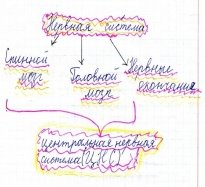 Нервная система
Спинной мозг
Головной мозг
Нервные окончания
центральная нервная
система (ЦНС)